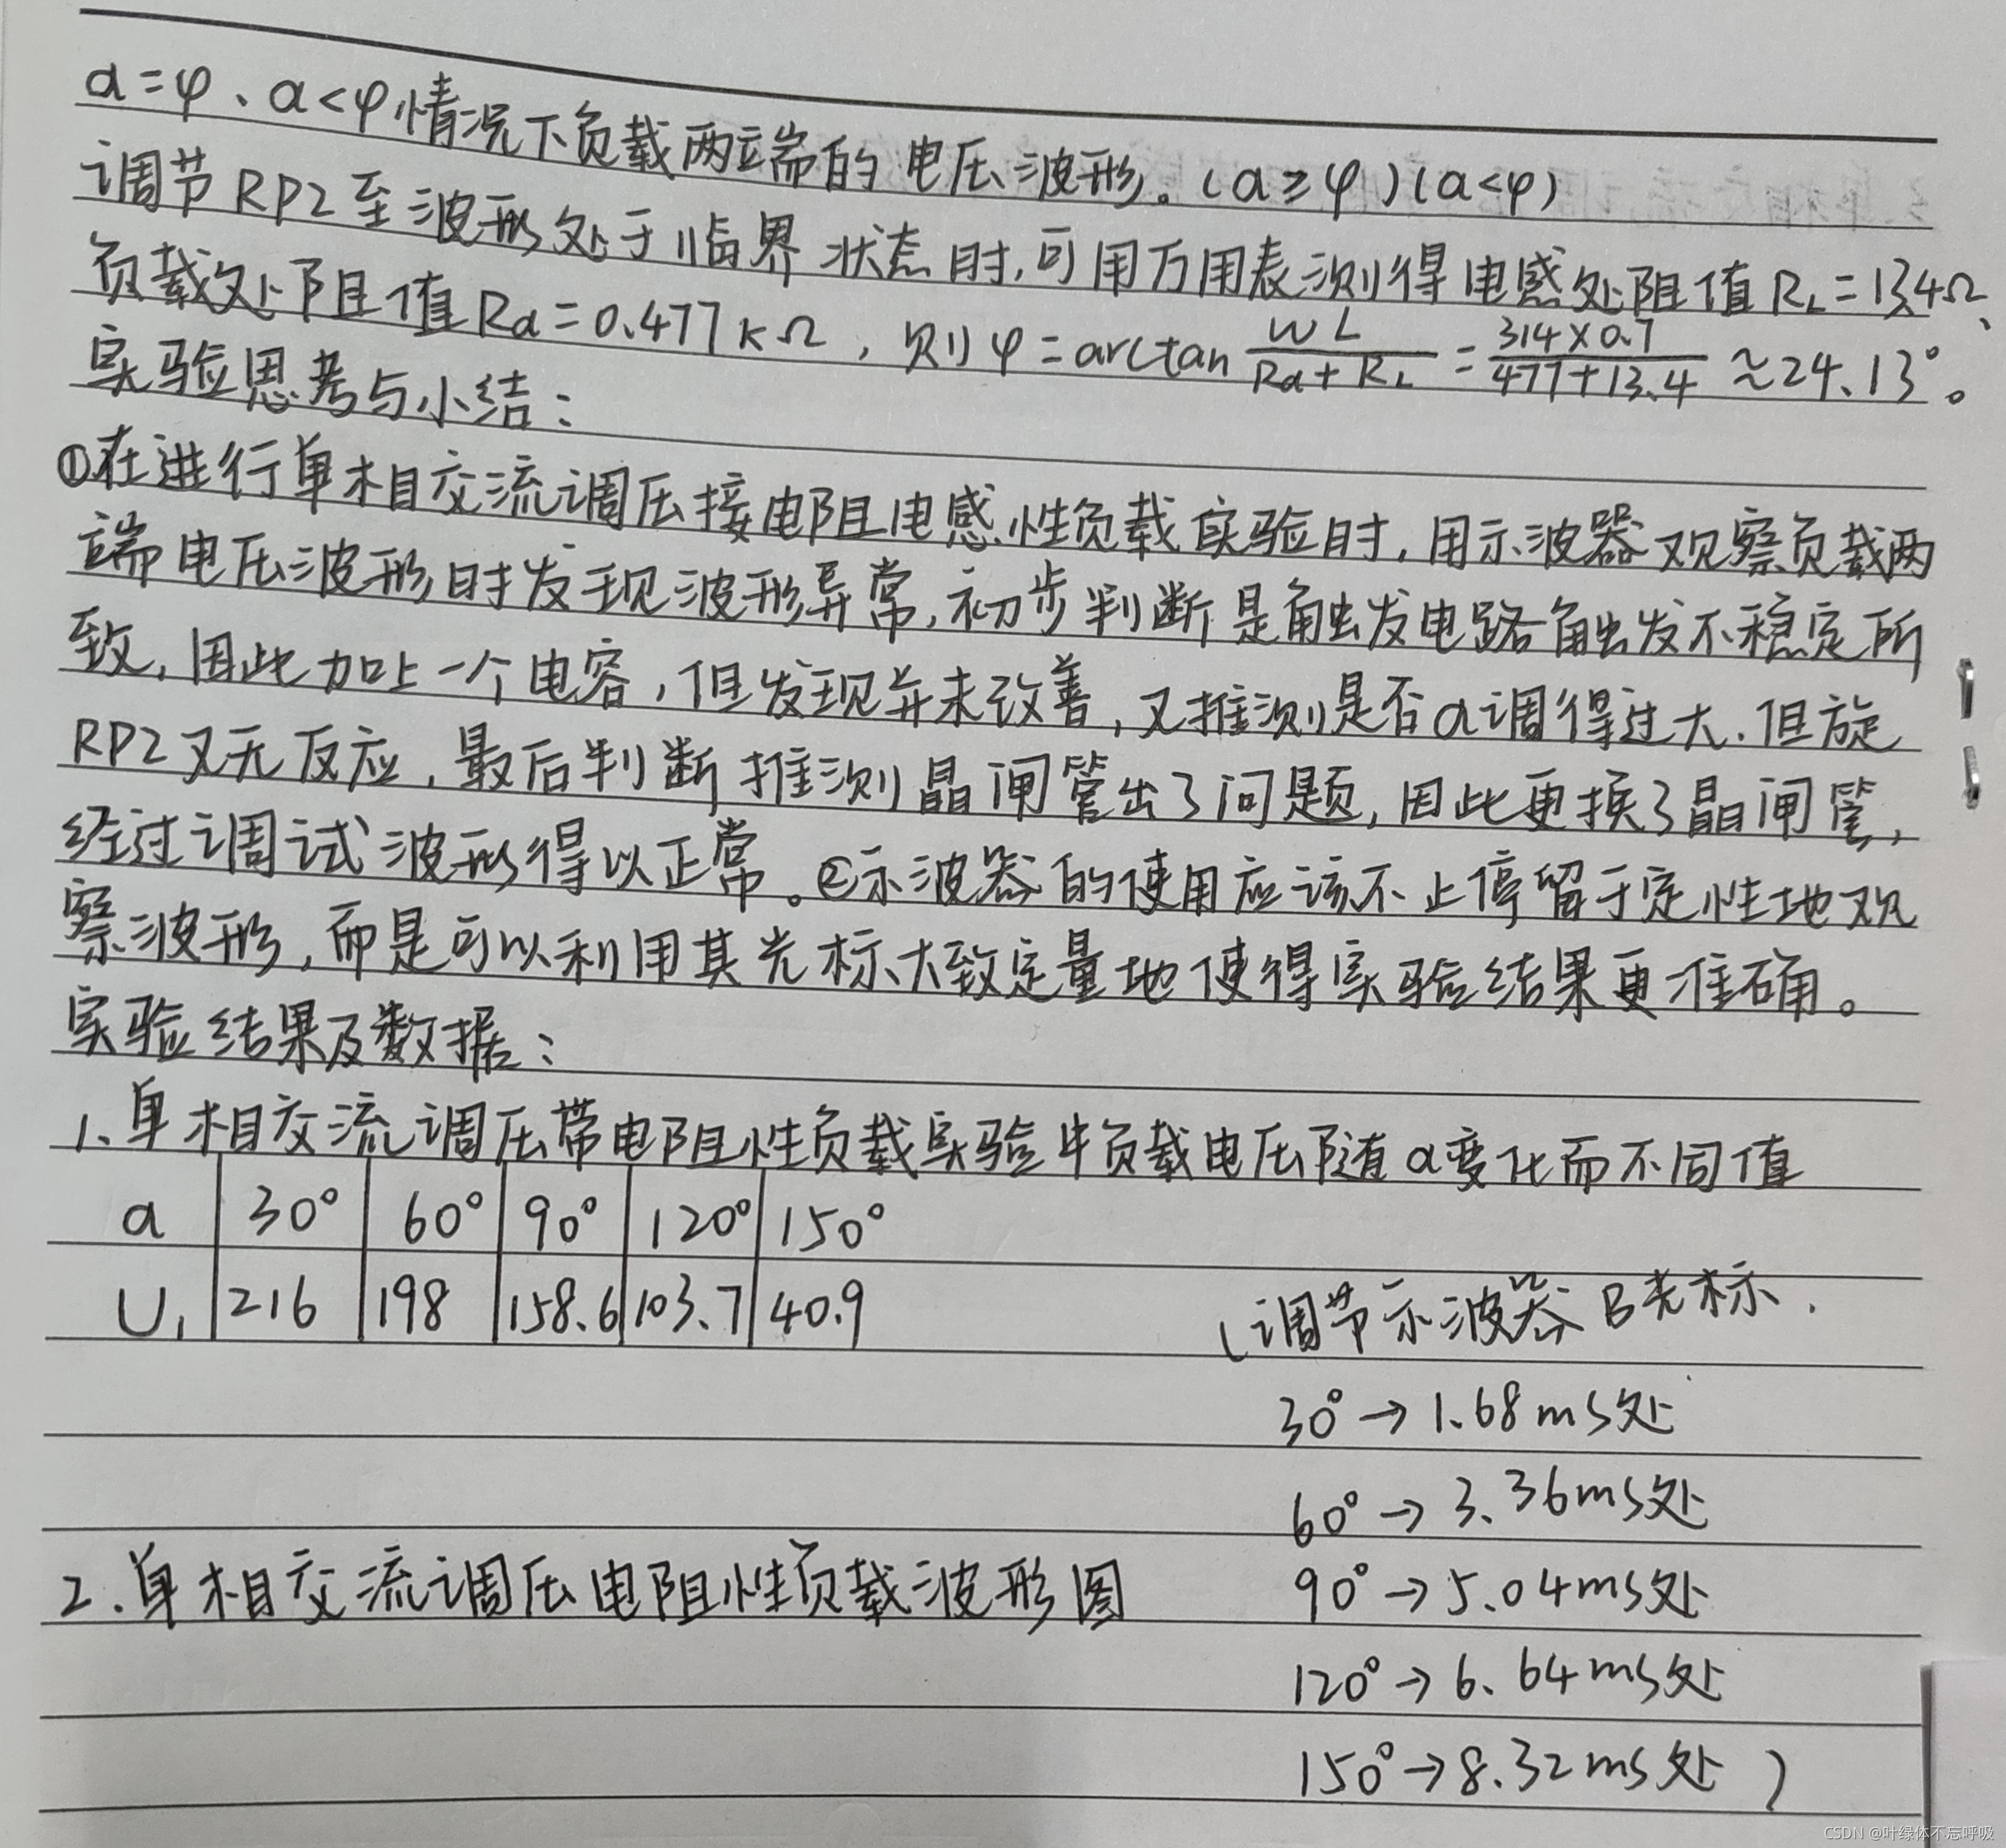 α=φ、α<φ情况下负载两端的电压波形。(α≥φ)(α<φ)
调节RP2至波形处于临界状态时,可用万用表测得电感处阻值RL=13.4Ω、
负载处阻值Rd=0.477kΩ,则φ=arctan wL/(Rd+RL)=314×0.7/(477+13.4)≈24.13°。
实验思考与小结:
①在进行单相交流调压接电阻电感性负载实验时,用示波器观察负载两
端电压波形时发现波形异常,初步判断是触发电路触发不稳定所
致,因此加上一个电容,但发现并未改善,又推测是否α调得过大.但旋
RP2又无反应,最后判断推测晶闸管出了问题,因此更换了晶闸管,
经过调试波形得以正常。②示波器的使用应该不止停留于定性地观
察波形,而是可以利用其光标大致定量地使得实验结果更准确。
实验结果及数据:
1、单相交流调压带电阻性负载实验中负载电压随α变化而不同值
α 30° 60° 90° 120° 150°
U1 216 198 158.6 103.7 40.9
(调节示波器B光标.
30°→1.68ms处
60°→3.36ms处
90°→5.04ms处
120°→6.64ms处
150°→8.32ms处)
2.单相交流调压电阻性负载波形图
CSDN @叶绿体不忘呼吸